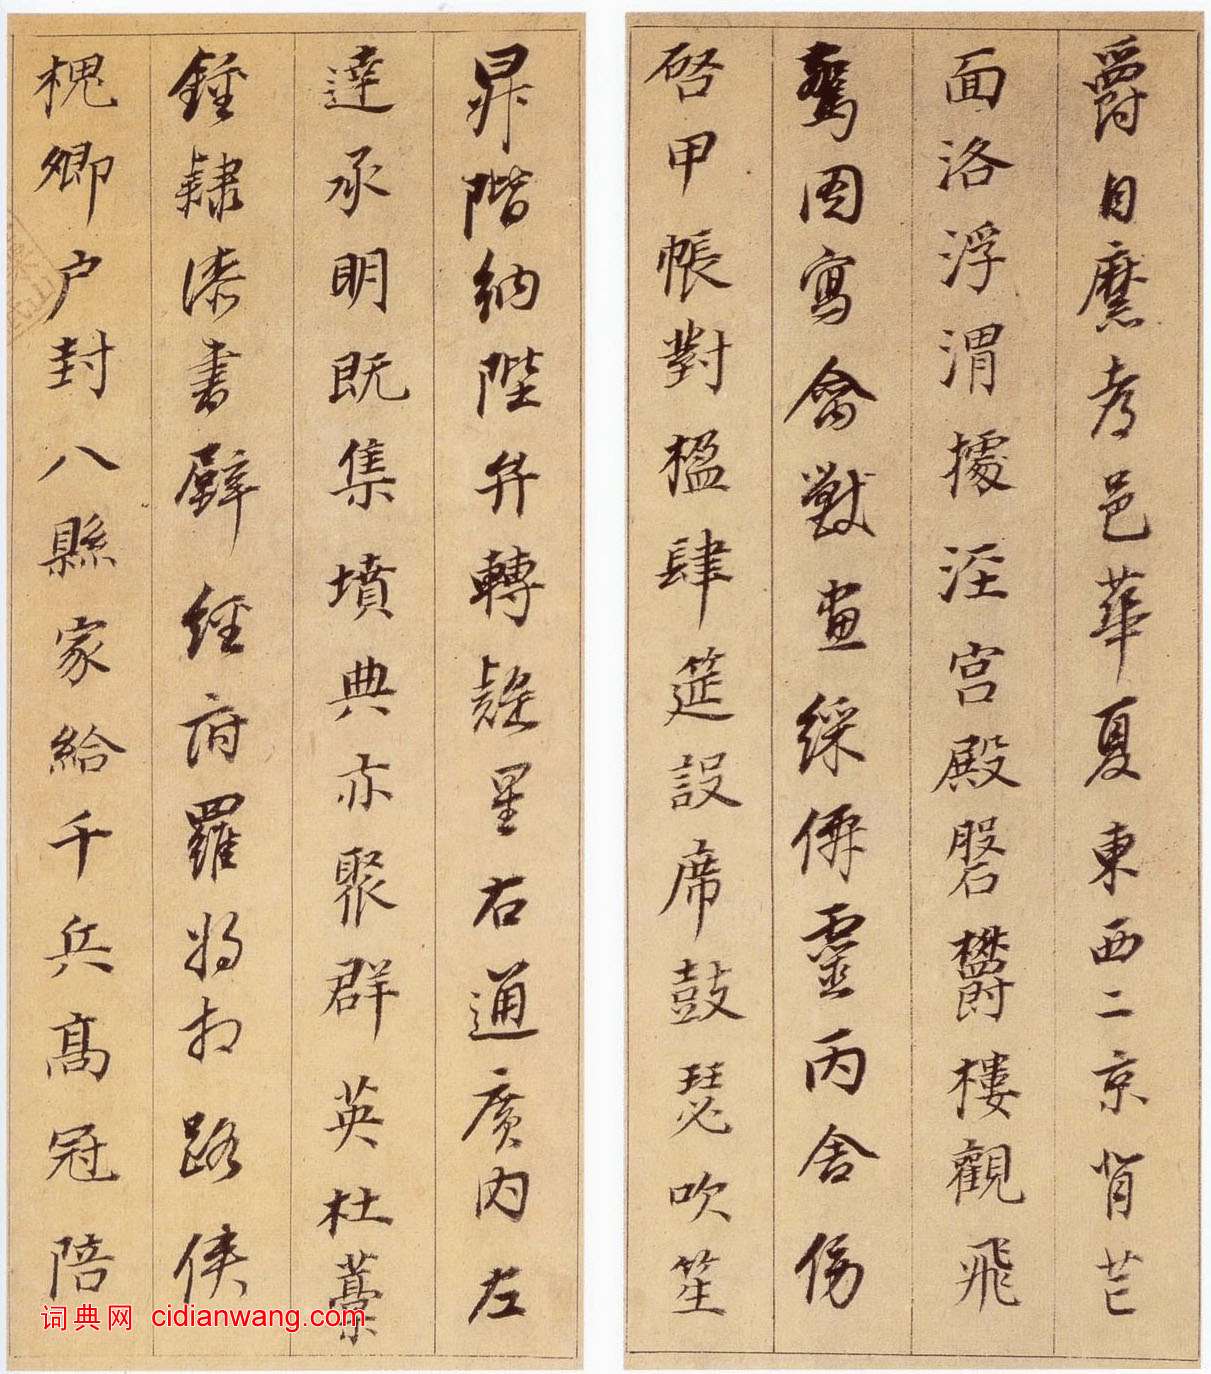 爵自縻都邑華夏東西二京背芒
面洛浮渭據涇宮殿磐鬱樓觀飛
驚圖寫禽獸畫綵僊靈丙舍傍
啓甲帳對楹肆筵設席鼓瑟吹笙
昇階納陛弁轉疑星右通廣內左
達承明既集墳典亦聚群英杜藁
鍾隸漆書壁經府羅將相路俠
槐卿户封八縣家給千兵高冠陪
词典网 cidianwang.com